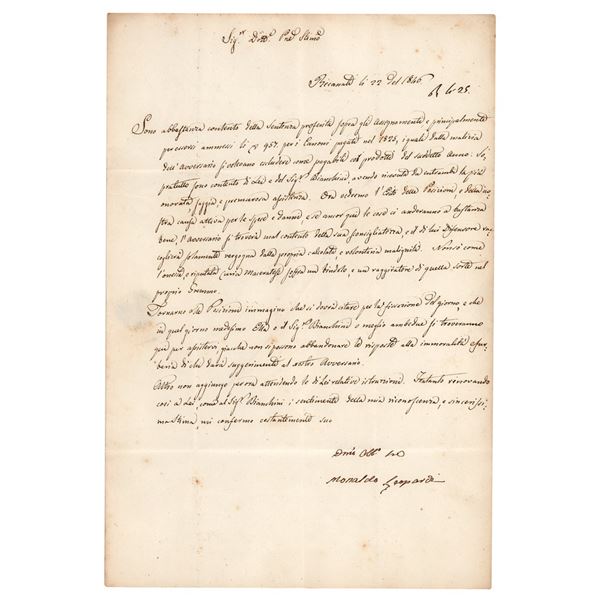 Sig.r Dott.e Pne Stimo
Recanati li 22 del 1846
li 25.
Sono abbastanza contento della Sentenza proferita sopra gli Assegnamenti e principalmente
per esserci ammessi li 957. per i Canoni pagati nel 1825, i quali dalla malizia
dell'Avversario si volevano escludere come pagabili col prodotto del suddetto Anno. So-
pratutto sono contento di Lei e del Sig.r Bianchini, avendo ricevuta da entrambi la più
onorata, saggia, e premurosa assistenza. Ora vedremo l'Esito delle Posizioni e della no-
stra causa attiva per le spese e danni, e se ancor que le cose ci anderanno a bastanza
bene, l'Avversario si troverà mal contento della sua consigliatezza, e il di lui Difensore rac-
coglierà solamente vergogna della propria calcolata e volontaria malignità. Non sò come
l'onesta, e riputata Curia Maceratese soffra un bindolo, e un raggiratore di quella sorte nel
proprio Gremio.
Tornando alle Posizioni immagino che si dovrà citare per la fissazione del giorno, e che
in quel giorno medesimo Ella o il Sig.r Bianchini o meglio ambedue si troveranno
quì per assistervi giacchè non si possono abbandonare le risposte alla immoralità e fur-
beria di chi darà suggerimenti al nostro Avversario.
Altro non aggiungo per ora attendendo le di Lei relative istruzioni. Frattanto rinnovando
così a Lei, come al Sig.r Bianchini i sentimenti della mia riconoscenza, e sincerissi-
ma stima, mi confermo costantemente suo
Dmo Obb.o
Monaldo Leopardi